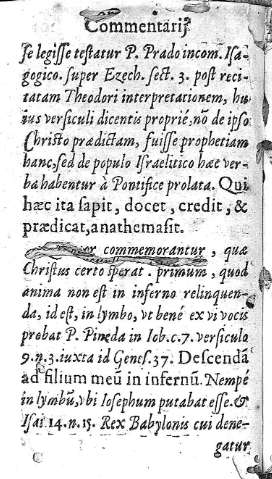 Commentarij
se legisse testatur P. Prado incom. Isa-
gogico. super Ezech. sect. 3. post reci-
tatam Theodori interpretationem, hu
ius versiculi dicentis proprie, nõ de ipso
Christo prædictam, fuisse prophetiam
hanc, sed de populo Israelitico hæc ver-
ba habentur à Pontifice prolata. Qui
hæc ita sapit, docet, credit, &
prædicat, anathemasit.
commemorantur, quæ
Christus certo sperat. primum, quod
anima non est in inferno relinquen-
da, id est, in lymbo, vt benè ex vi vocis
probat P. Pineda in Iob. c. 7. versiculo
9. n. 3. iuxta id Genes. 37. Descendã
ad filium meũ in infernũ. Nempé
in lymbũ, vbi Iosephum putabat esse. &
Isai. 14. n. 15. Rex Babylonis cui dene-
gatur